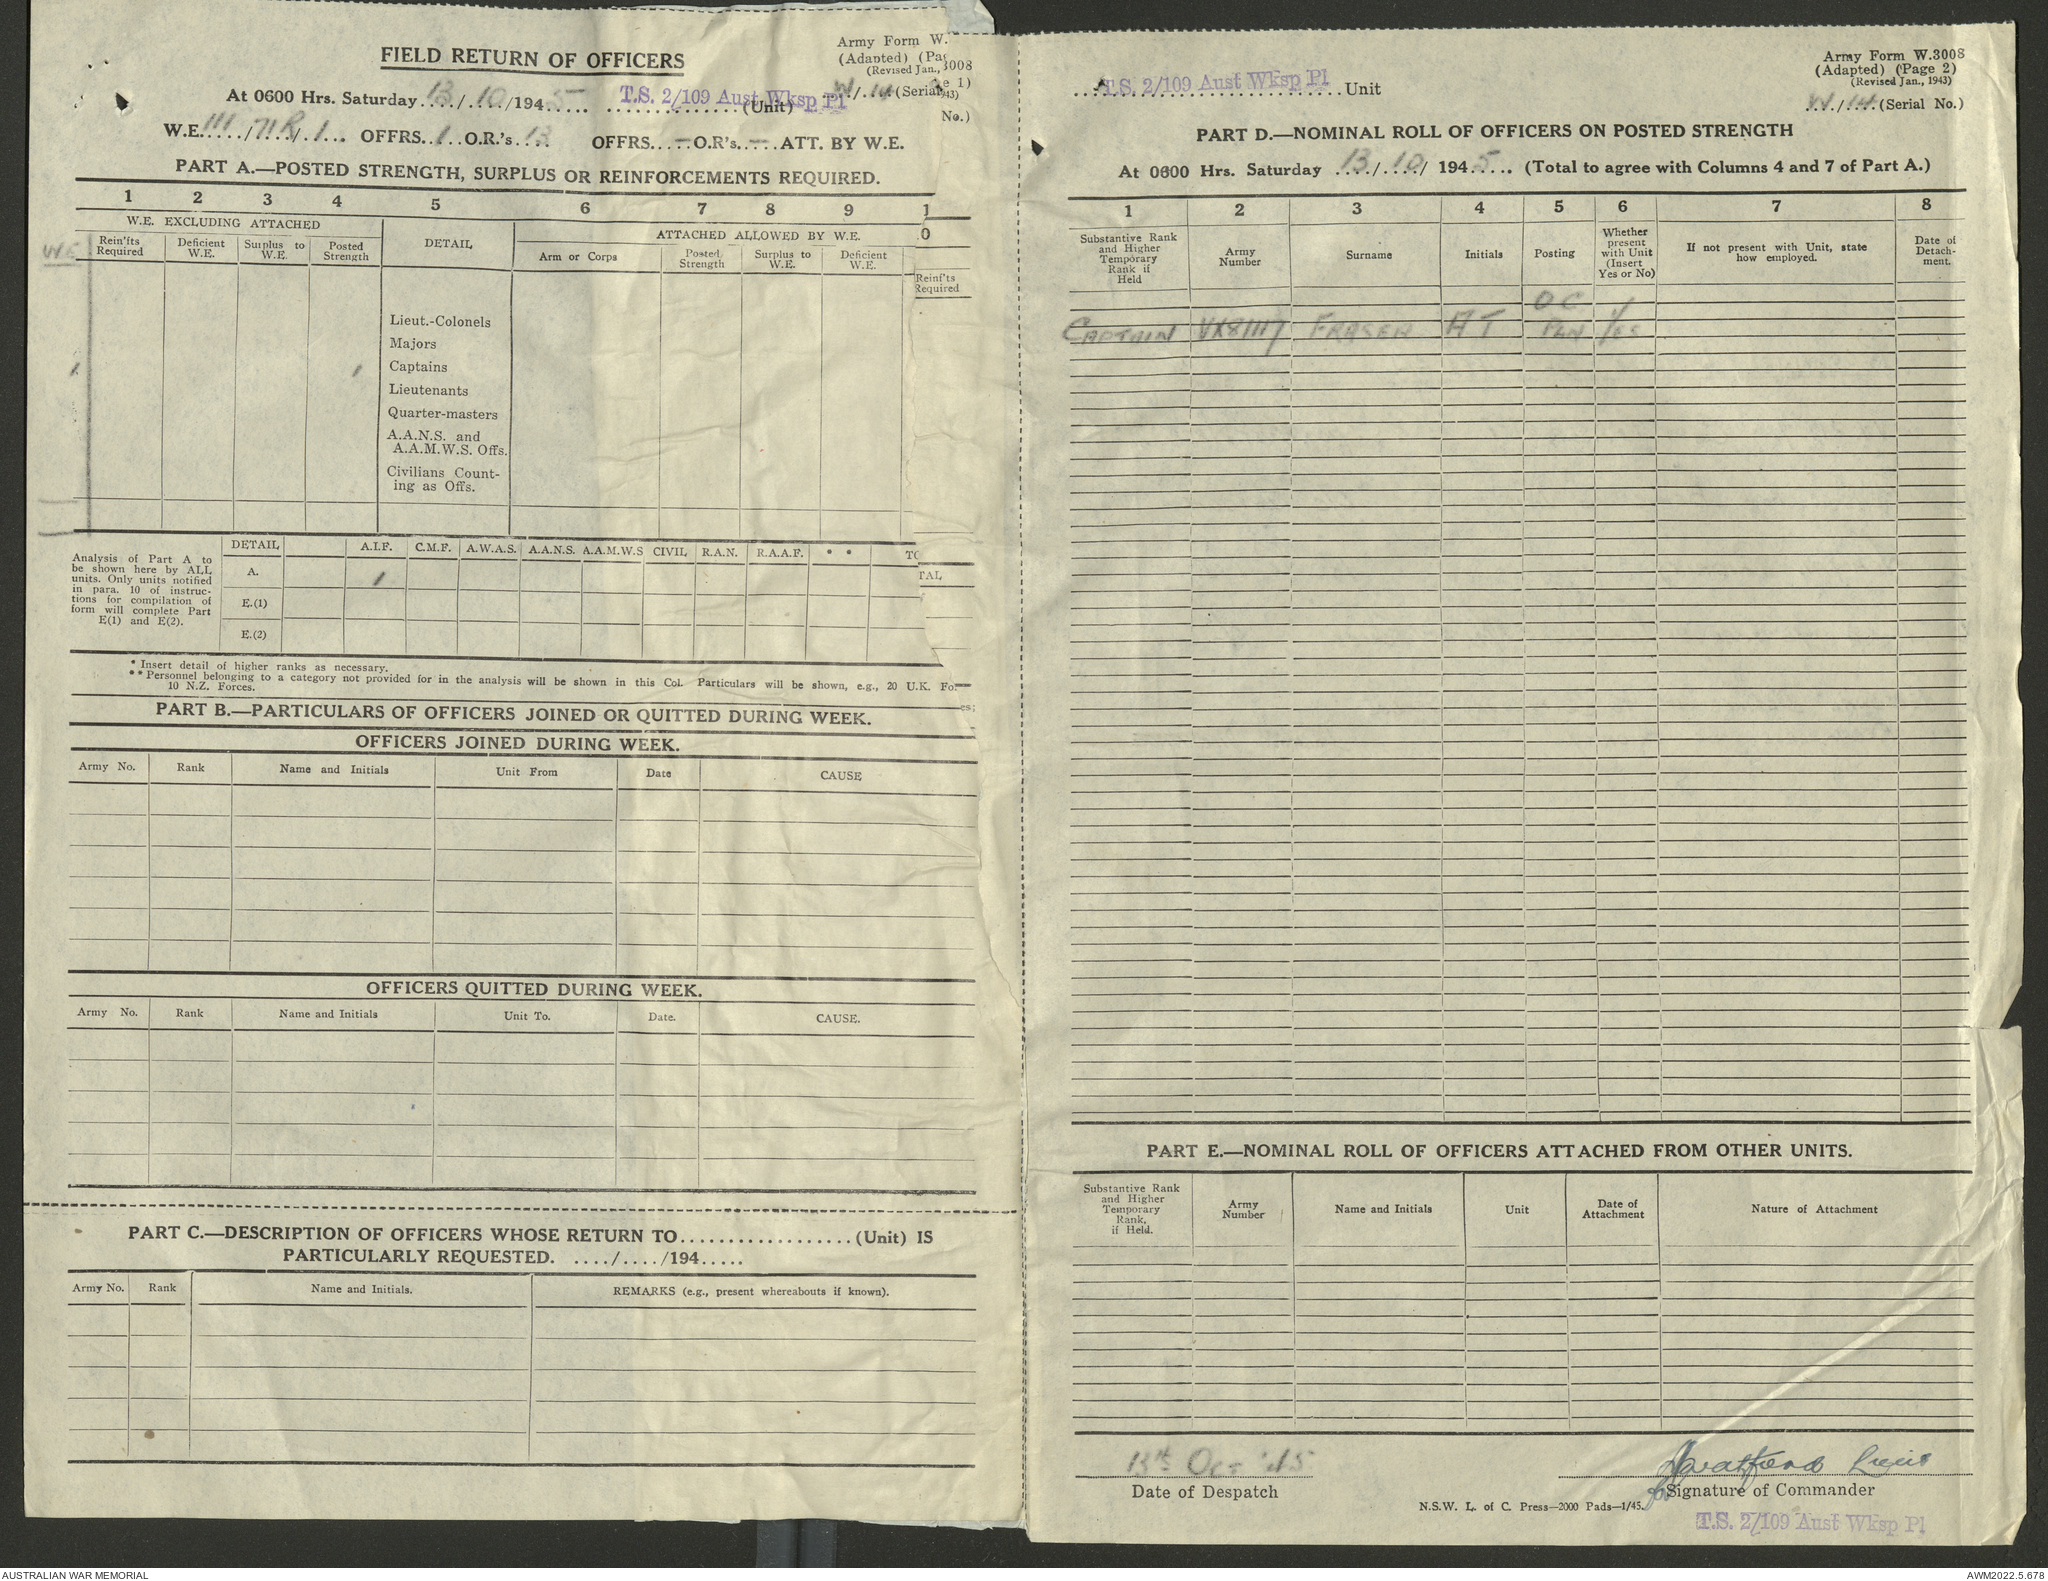 FIELD RETURN OF OFFICERS
Army Form W.3008
(Adapted) (Page 1)
(Revised Jan., 1943)
At 0600 Hrs. Saturday 13/10/1945 T.S. 2/109 Aust Wksp Pl (Unit) W/14 (Serial No.)
W.E. 111/71R/1 OFFRS. 1 O.R.'s 13 OFFRS. — O.R's. — ATT. BY W.E.
PART A.—POSTED STRENGTH, SURPLUS OR REINFORCEMENTS REQUIRED.
1 2 3 4 5 6 7 8 9 10
W.E. EXCLUDING ATTACHED
DETAIL
ATTACHED ALLOWED BY W.E.
W.E.
Rein'fts Required
Deficient W.E.
Surplus to W.E.
Posted Strength
Arm or Corps
Posted Strength
Surplus to W.E.
Deficient W.E.
Reinf'ts Required
Lieut.-Colonels
Majors
1 1 Captains
Lieutenants
Quarter-masters
A.A.N.S. and
A.A.M.W.S. Offs.
Civilians Count-
ing as Offs.
Analysis of Part A to
be shown here by ALL
units. Only units notified
in para. 10 of instruc-
tions for compilation of
form will complete Part
E(1) and E(2).
DETAIL A.I.F. C.M.F. A.W.A.S. A.A.N.S. A.A.M.W.S CIVIL R.A.N. R.A.A.F. * * TOTAL
A. 1
E.(1)
E.(2)
* Insert detail of higher ranks as necessary.
** Personnel belonging to a category not provided for in the analysis will be shown in this Col. Particulars will be shown, e.g., 20 U.K. Forces;
10 N.Z. Forces.
PART B.—PARTICULARS OF OFFICERS JOINED OR QUITTED DURING WEEK.
OFFICERS JOINED DURING WEEK.
Army No. Rank Name and Initials Unit From Date CAUSE
OFFICERS QUITTED DURING WEEK.
Army No. Rank Name and Initials Unit To. Date. CAUSE.
PART C.—DESCRIPTION OF OFFICERS WHOSE RETURN TO..................(Unit) IS
PARTICULARLY REQUESTED. ..../..../194.....
Army No. Rank Name and Initials. REMARKS (e.g., present whereabouts if known).
Army Form W.3008
(Adapted) (Page 2)
(Revised Jan., 1943)
T.S. 2/109 Aust Wksp Pl Unit
W/14 (Serial No.)
PART D.—NOMINAL ROLL OF OFFICERS ON POSTED STRENGTH
At 0600 Hrs. Saturday 13/10/1945 (Total to agree with Columns 4 and 7 of Part A.)
1 2 3 4 5 6 7 8
Substantive Rank and Higher Temporary Rank if Held
Army Number
Surname
Initials
Posting
Whether present with Unit (Insert Yes or No)
If not present with Unit, state how employed.
Date of Detach-ment.
CAPTAIN VX81117 FRASER AT OC PLN YES
PART E.—NOMINAL ROLL OF OFFICERS ATTACHED FROM OTHER UNITS.
Substantive Rank and Higher Temporary Rank, if Held.
Army Number
Name and Initials
Unit
Date of Attachment
Nature of Attachment
13th Oct '45
Date of Despatch
Lieut
for Signature of Commander
N.S.W. L. of C. Press—2000 Pads—1/45.
T.S. 2/109 Aust Wksp Pl
AUSTRALIAN WAR MEMORIAL
AWM2022.5.678